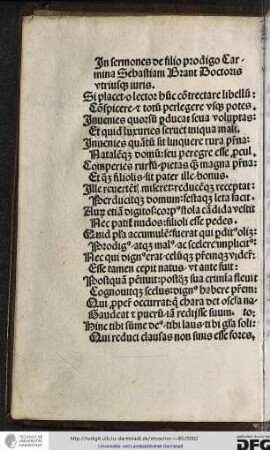 In sermones de filio prodigo Car-
mina Sebastiani Brant Doctoris
vtriusqȝ iuris.
Si placet o lector hūc cōtrectare libellū:
Cōspicere ⁊ totū perlegere vsqȝ potes.
Inuenies quorsū ꝓducat seua voluptas:
Et quid luxuries seruet iniqua mali.
Inuenies quātū sit linquere rura pr̄na:
Natalēqȝ domū: seu peregre esse ꝓcul.
Comperies rursū pietas qȝ̄ magna pr̄na:
Et qȝ filiolis sit pater ille bonus.
Ille reuertētē miseret: reducēqȝ receptat:
Perducitqȝ domum: festaqȝ leta facit.
Aurꝫ etiā digitos: corpꝰ stola cādida vestit
Nec patit̄ nudos filioli esse pedes.
fuerat qui ꝓditꝰ olīȝ:
Prodigꝰ atqȝ malꝰ ac scelere implicitꝰ:
Nec qui dignꝰ erat
Esse tamen cepit natus vt ante fuit:
Postquā penituit: postqȝ sua crimīa fleuit
Cognouitqȝ scelus: dignꝰ habere pr̄em:
Qui ꝓperꝰ occurrat: qȝ chara det oscla na-
Gaudeat ⁊ puerū iā redijsse suum. to:
Hinc tibi sume deꝰ tibi laus ti bi gl̄a soli:
Qui reduci clausas non sinis esse fores.
TECHNISCHE UNIVERSITÄT DARMSTADT
Universitäts- und Landesbibliothek Darmstadt
DFG